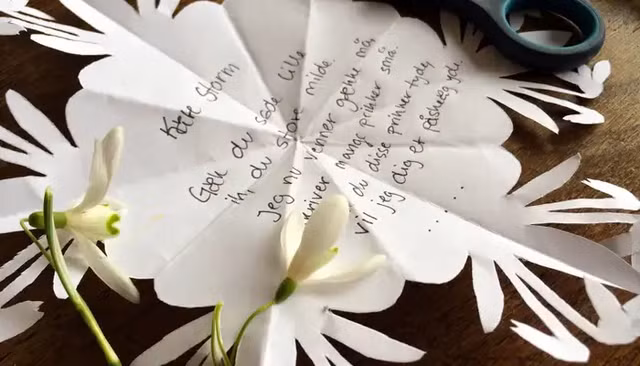 Kære Storm
Gæk du søde lille
ih, du store milde.
Jeg nu venner gække må,
kriver mange prikker små.
du disse prikker tyde,
vil jeg dig et påskeæg yde.
. . . . .